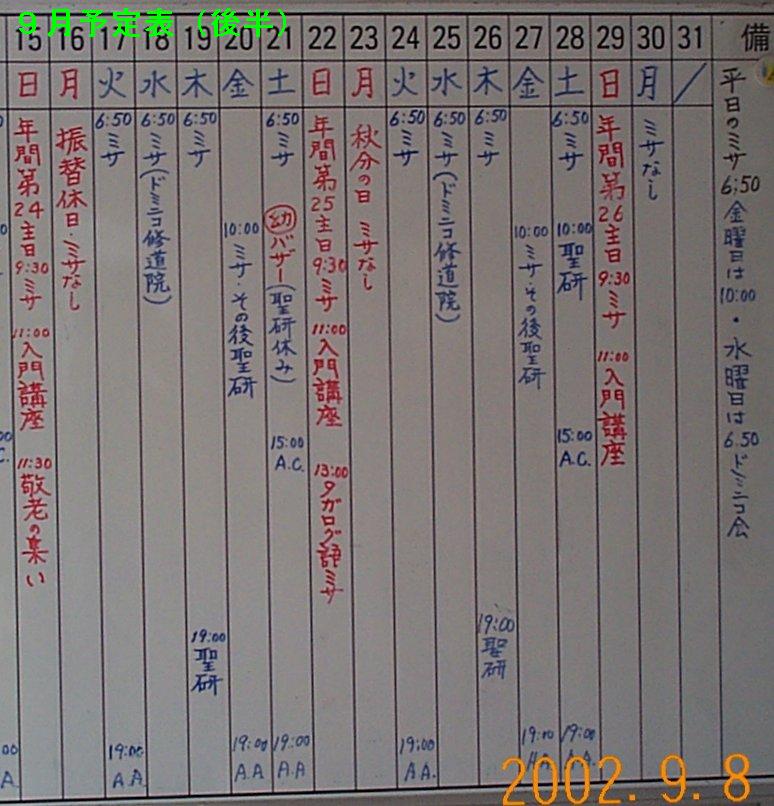 9月予定表（後半）
15 16 17 18 19 20 21 22 23 24 25 26 27 28 29 30 31 備
日 月 火 水 木 金 土 日 月 火 水 木 金 土 日 月 /
年間第24主日 9:30 ミサ 11:00 入門講座 11:30 敬老の集い
振替休日・ミサなし
6:50 ミサ
19:00 A.A
6:50 ミサ(ドミニコ修道院)
6:50 ミサ
19:00 聖研
10:00 ミサ・その後聖研
19:00 A.A
6:50 ミサ
幼 バザー(聖研休み)
15:00 A.C.
19:00 A.A
年間第25主日 9:30 ミサ 11:00 入門講座 13:00 タガログ語ミサ
秋分の日 ミサなし
6:50 ミサ
19:00 A.A.
6:50 ミサ(ドミニコ修道院)
6:50 ミサ
19:00 聖研
10:00 ミサ・その後聖研
19:00
6:50 ミサ
10:00 聖研
15:00 A.C.
19:00
年間第26主日 9:30 ミサ 11:00 入門講座
ミサなし
平日のミサ 6:50 金曜日は 10:00 ・水曜日は 6.50 ドミニコ会
2002. 9. 8